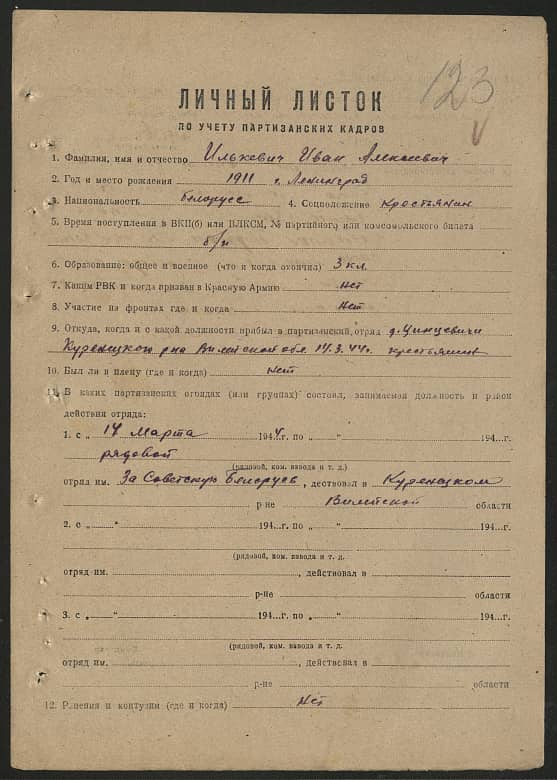 123
ЛИЧНЫЙ ЛИСТОК
ПО УЧЕТУ ПАРТИЗАНСКИХ КАДРОВ
1. Фамилия, имя и отчество Илькевич Иван Алексеевич
2. Год и место рождения 1911 г. Ленинград
3. Национальность Белорусс 4. Соцположение крестьянин
5. Время поступления в ВКП(б) или ВЛКСМ, № партийного или комсомольского билета
б/п
6. Образование: общее и военное (что и когда окончил) 3 кл.
7. Каким РВК и когда призван в Красную Армию нет
8. Участие на фронтах где и когда нет
9. Откуда, когда и с какой должности прибыл в партизанский отряд д. Цинцевичи
Куренецкого р-на Вилейской обл. 14.3.44г. крестьянин
10. Был ли в плену (где и когда) нет
11. В каких партизанских отрядах (или группах) состоял, занимаемая должность и район
действия отряда:
1. с „ 14 Марта 1944г. по „ “ 194...г.
рядовой
(рядовой, ком. взвода и т. д.)
отряд им. За Советскую Белорусь, дествовал в Куренецком
р-не Вилейской области
2. с „ “ 194...г. по „ “ 194...г.
(рядовой, ком. взвода и т. д.
отряд им. , действовал в
р-не области
3. с „ “ 194...г. по „ “ 194...г.
(рядовой, ком. взвода и т. д.
отряд им. , действовал в
р-не области
12. Ранения и контузии (где и когда) нет